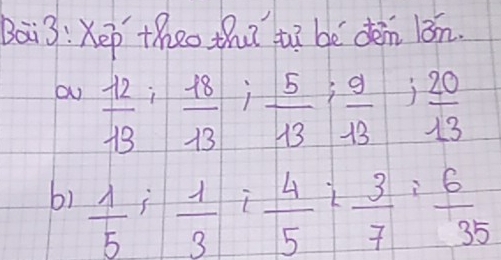 Bài 3: Xếp theo thứ tự bé đến lớn.
a) 12/13 ; 18/13 ; 5/13 ; 9/13 ; 20/13
b) 1/5 ; 1/3 ; 4/5 ; 3/7 ; 6/35